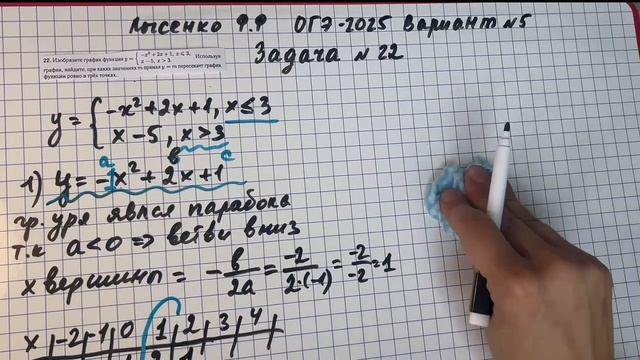 Лысенко Ф.Ф ОГЭ-2025 Вариант №5
Задача №22
22. Изобразите график функции y = { -x² + 2x + 1, x ⩽ 3, x - 5, x > 3. Используя
график, найдите, при каких значениях m прямая y = m пересекает график
функции ровно в трёх точках.
y = { -x² + 2x + 1, x ≤ 3
x - 5, x > 3
a b c
1) y = -1x² + 2x + 1
гр. ур-я явл-ся парабола
т.к a < 0 => ветви вниз
x вершины = - b/2a = -2/2·(-1) = -2/-2 = 1
x | -2 | -1 | 0 | 1 | 2 | 3 | 4 |